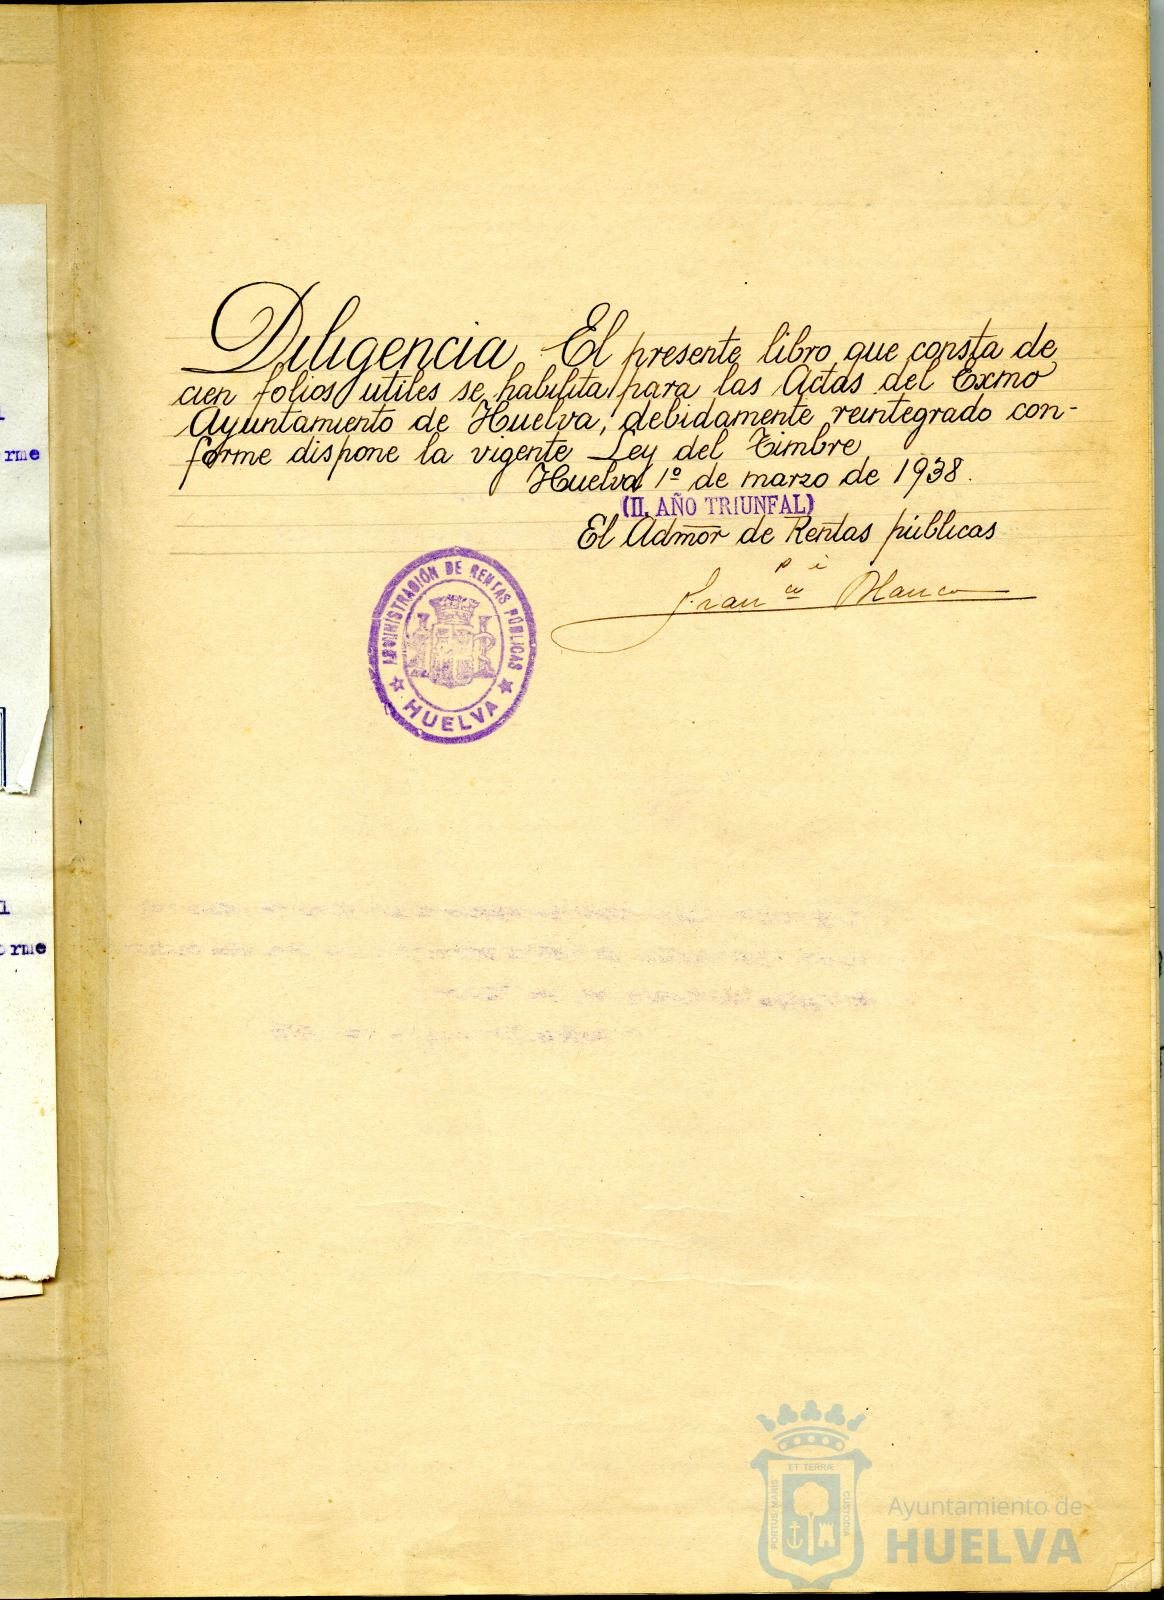 Diligencia El presente libro que consta de
cien folios utiles se habilita para las Actas del Exmo
Ayuntamiento de Huelva, debidamente reintegrado con-
forme dispone la vigente Ley del Timbre
Huelva 1º de marzo de 1938.
(II AÑO TRIUNFAL)
El Admor de Rentas públicas
p i
Franco Blanco
ADMINISTRACIÓN DE RENTAS PÚBLICAS
HUELVA
rme
orme
ET TERRÆ
PORTUS MARIS
CUSTODIA
Ayuntamiento de
HUELVA